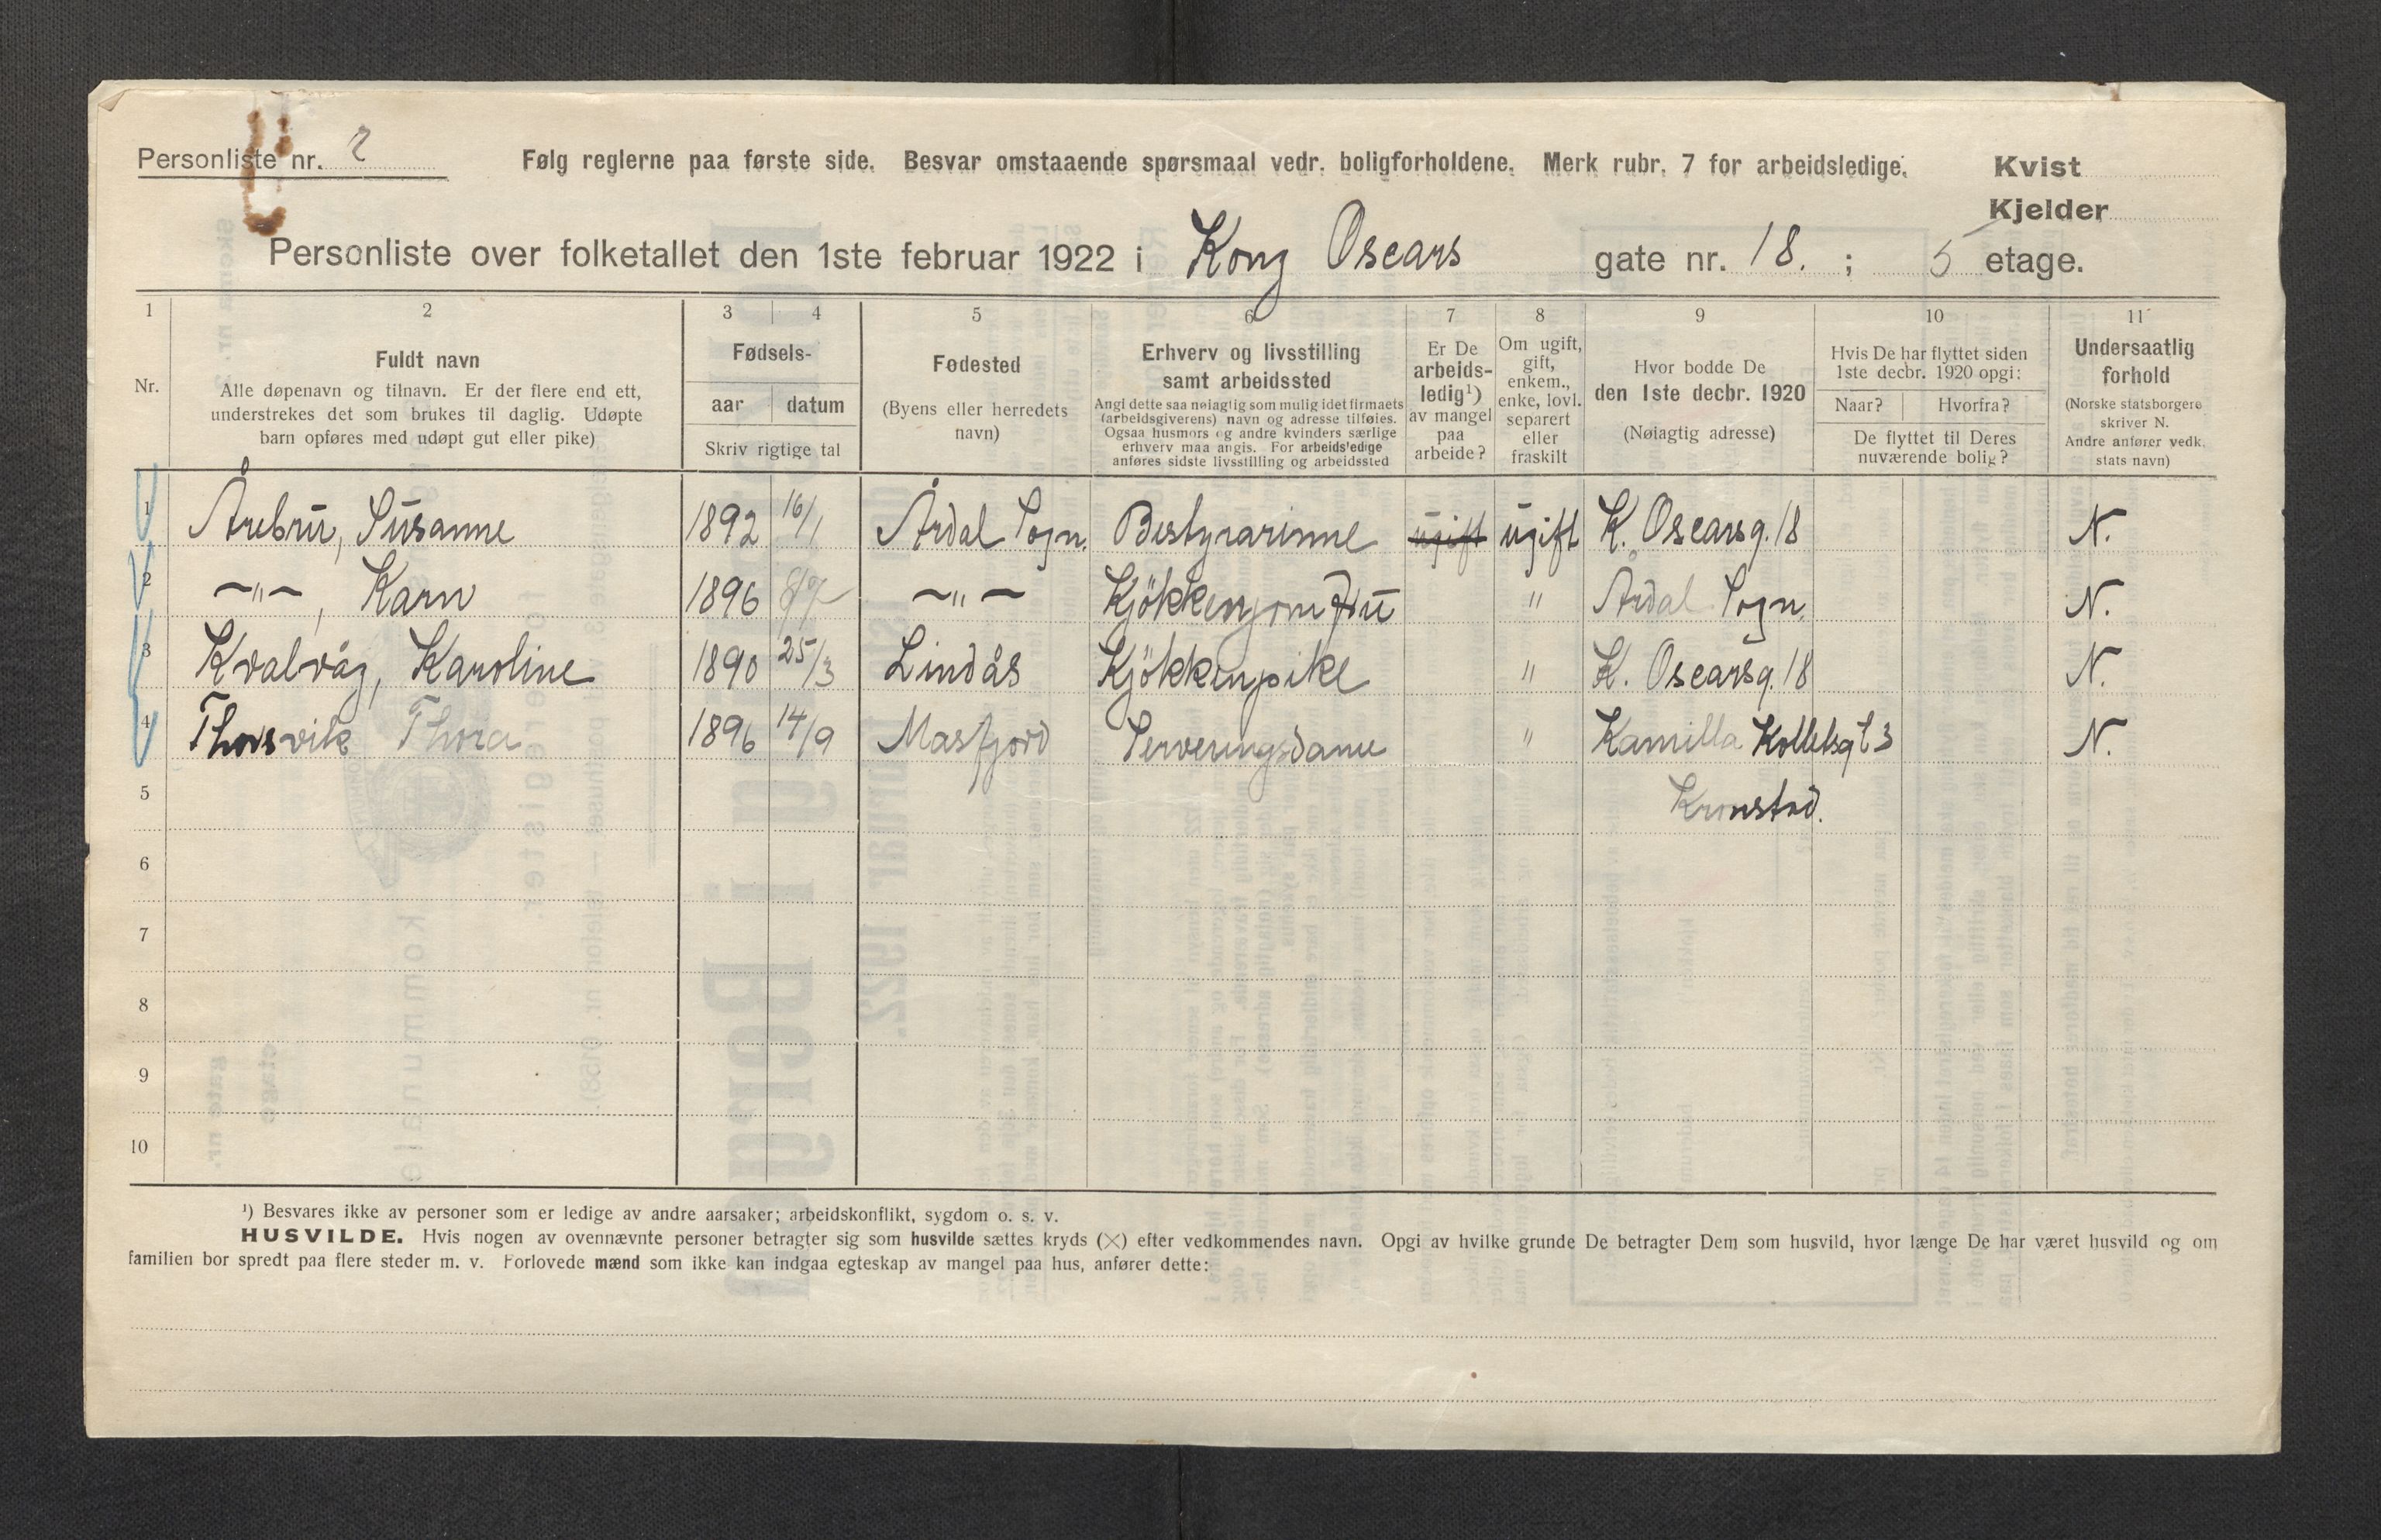 Personliste nr. 2
Følg reglerne paa første side. Besvar omstaaende spørsmaal vedr. boligforholdene. Merk rubr. 7 for arbeidsledige.
Kvist
Kjelder
Personliste over folketallet den 1ste februar 1922 i Kong Oscars gate nr. 18. ; 5 etage.
1 2 3 4 5 6 7 8 9 10 11
Nr.
Fuldt navn
Alle døpenavn og tilnavn. Er der flere end ett,
understrekes det som brukes til daglig. Udøpte
barn opføres med udøpt gut eller pike)
Fødsels-
aar datum
Skriv rigtige tal
Fødested
(Byens eller herredets
navn)
Erhverv og livsstilling
samt arbeidssted
Angi dette saa nøiagtig som mulig idet firmaets
(arbeidsgiverens) navn og adresse tilføies.
Ogsaa husmors og andre kvinders særlige
erhverv maa angis. For arbeidsledige
anføres sidste livsstilling og arbeidssted
Er De
arbeids-
ledig¹)
av mangel
paa
arbeide?
Om ugift,
gift,
enkem.,
enke, lovl.
separert
eller
fraskilt
Hvor bodde De
den 1ste decbr. 1920
(Nøiagtig adresse)
Hvis De har flyttet siden
1ste decbr. 1920 opgi:
Naar? Hvorfra?
De flyttet til Deres
nuværende bolig?
Undersaatlig
forhold
(Norske statsborgere
skriver N.
Andre anfører vedk.
stats navn)
1 Årebru, Susanne 1892 16/1 Årdal Sogn. Bestyrarinne ugift ugift K. Oscarsg. 18 N.
2 —"—, Karn 1896 8/7 —"— Kjökkenjomfru " Årdal Sogn. N.
3 Kvalvåg, Karoline 1890 25/3 Lindås Kjökkenpike " K. Oscarsg. 18 N.
4 Thorsvik Thora 1896 14/9 Masfjord Serveringsdame " Kamilla Kolletsgt 3 N.
5 Kronstad.
6
7
8
9
10
¹) Besvares ikke av personer som er ledige av andre aarsaker; arbeidskonflikt, sygdom o. s. v.
HUSVILDE. Hvis nogen av ovennævnte personer betragter sig som husvilde sættes kryds (×) efter vedkommendes navn. Opgi av hvilke grunde De betragter Dem som husvild, hvor længe De har været husvild og om
familien bor spredt paa flere steder m. v. Forlovede mænd som ikke kan indgaa egteskap av mangel paa hus, anfører dette: